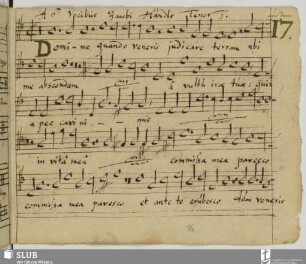 A 8 Vocibus Jacobi Händls Tenor I.
17.
Domine quando veneris judicare terram ubi
me abscondam à vultu irae tuae: quia
peccavi ni-mis
in vita mea commissa mea pavesco
commissa mea pavesco et ante te erubesco dum veneris
SLUB
Wir führen Wissen.